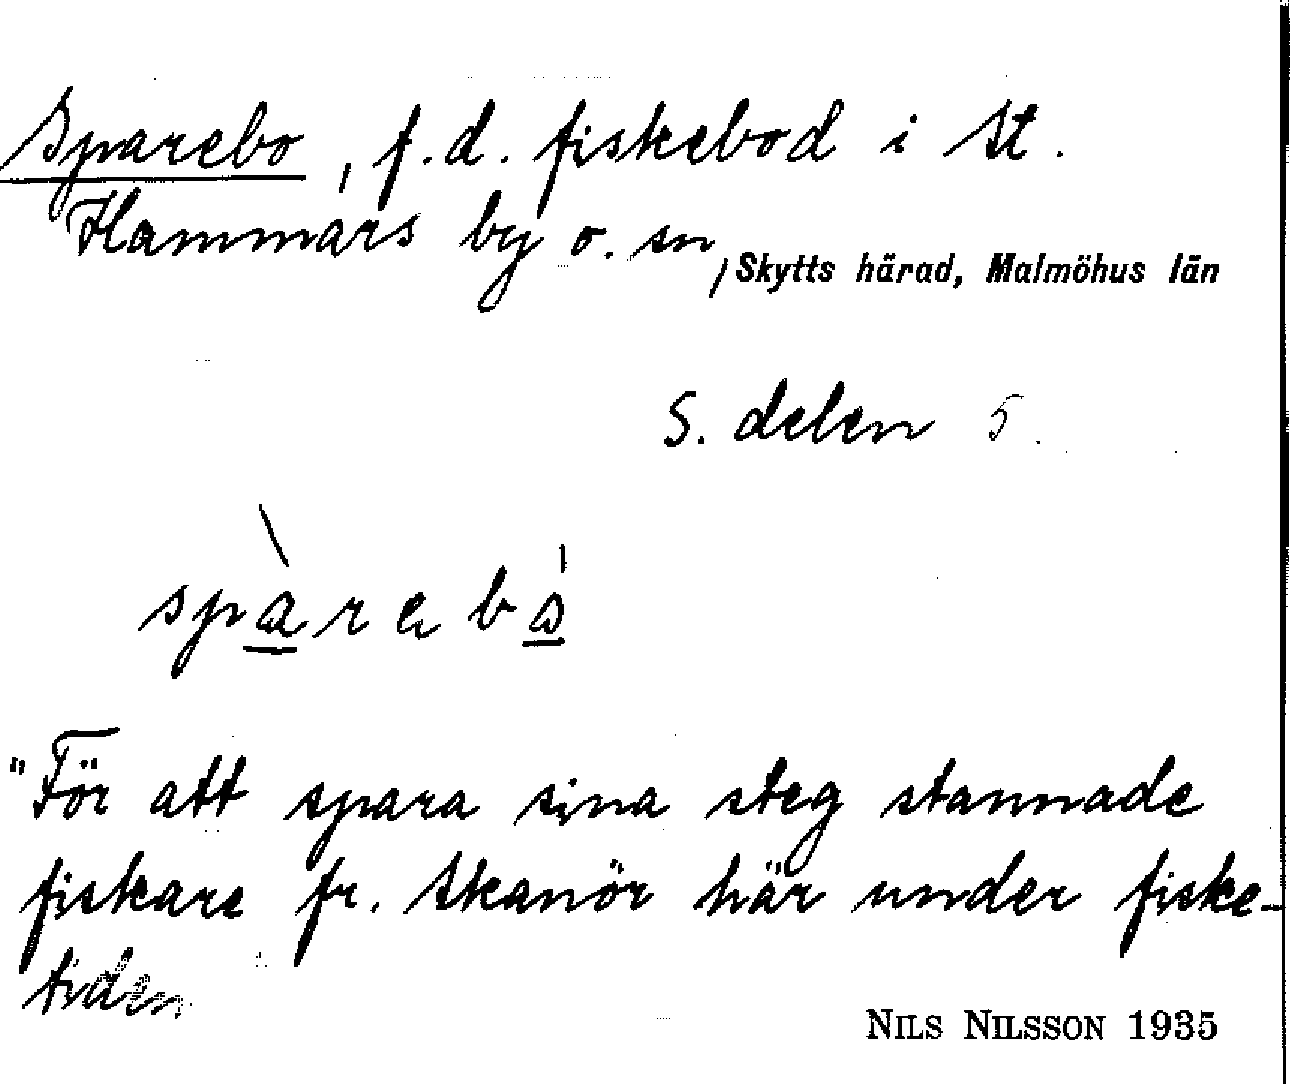 Sparebo, f.d. fiskebod i St.
Hammars by o. sn, Skytts härad, Malmöhus län
S. delen 5.
sparebo
"För att spara sina steg stannade
fiskare fr. Skanör här under fiske-
tiden
NILS NILSSON 1935